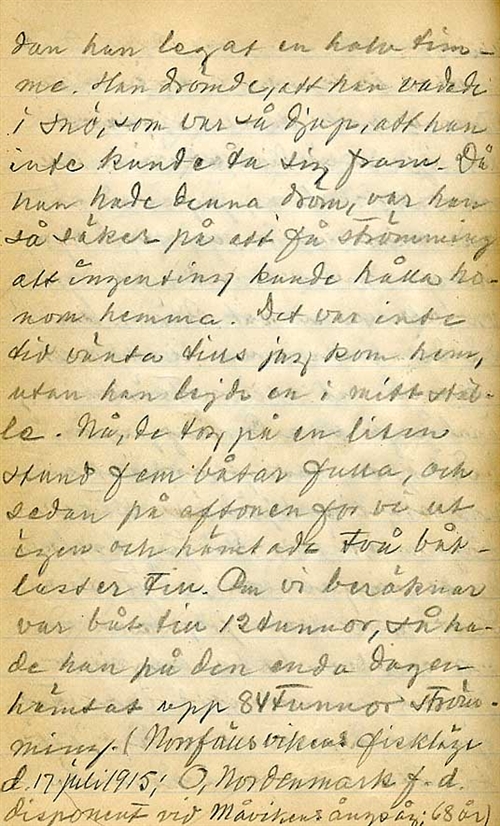 dan han legat en halv tim-
me. Han drömde, att han vadade
i snö, som var så djup, att han
inte kunde ta sig fram. Då
han hade denna dröm, var han
så säker på att få strömming
att ingenting kunde hålla ho-
nom hemma. Det var inte
tid vänta tills jag kom hem,
utan han lejde en i mitt stäl-
le. Nå, de tog på en liten
stund fem båtar fulla, och
sedan på aftonen for vi ut
igen och hämtade två båt-
laster till. Om vi beräknar
var båt till 12 tunnor, så ha-
de han på den enda dagen
hämtat upp 84 tunnor ström-
ming. (Norrfällsvikens fiskläge
d. 17 juli 1915; O, Nordenmark f. d.
disponent vid Måvikens ångsåg; 68 år)